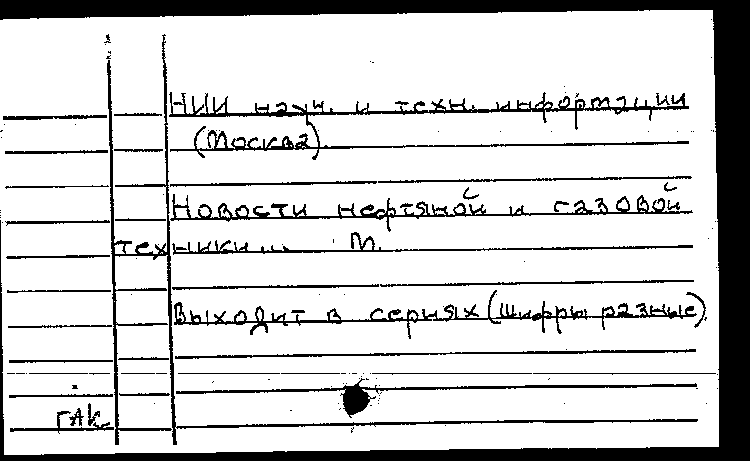 НИИ науч. и техн. информации
(Москва).
Новости нефтяной и газовой
техники... М.
Выходит в сериях (шифры разные)
ГАК